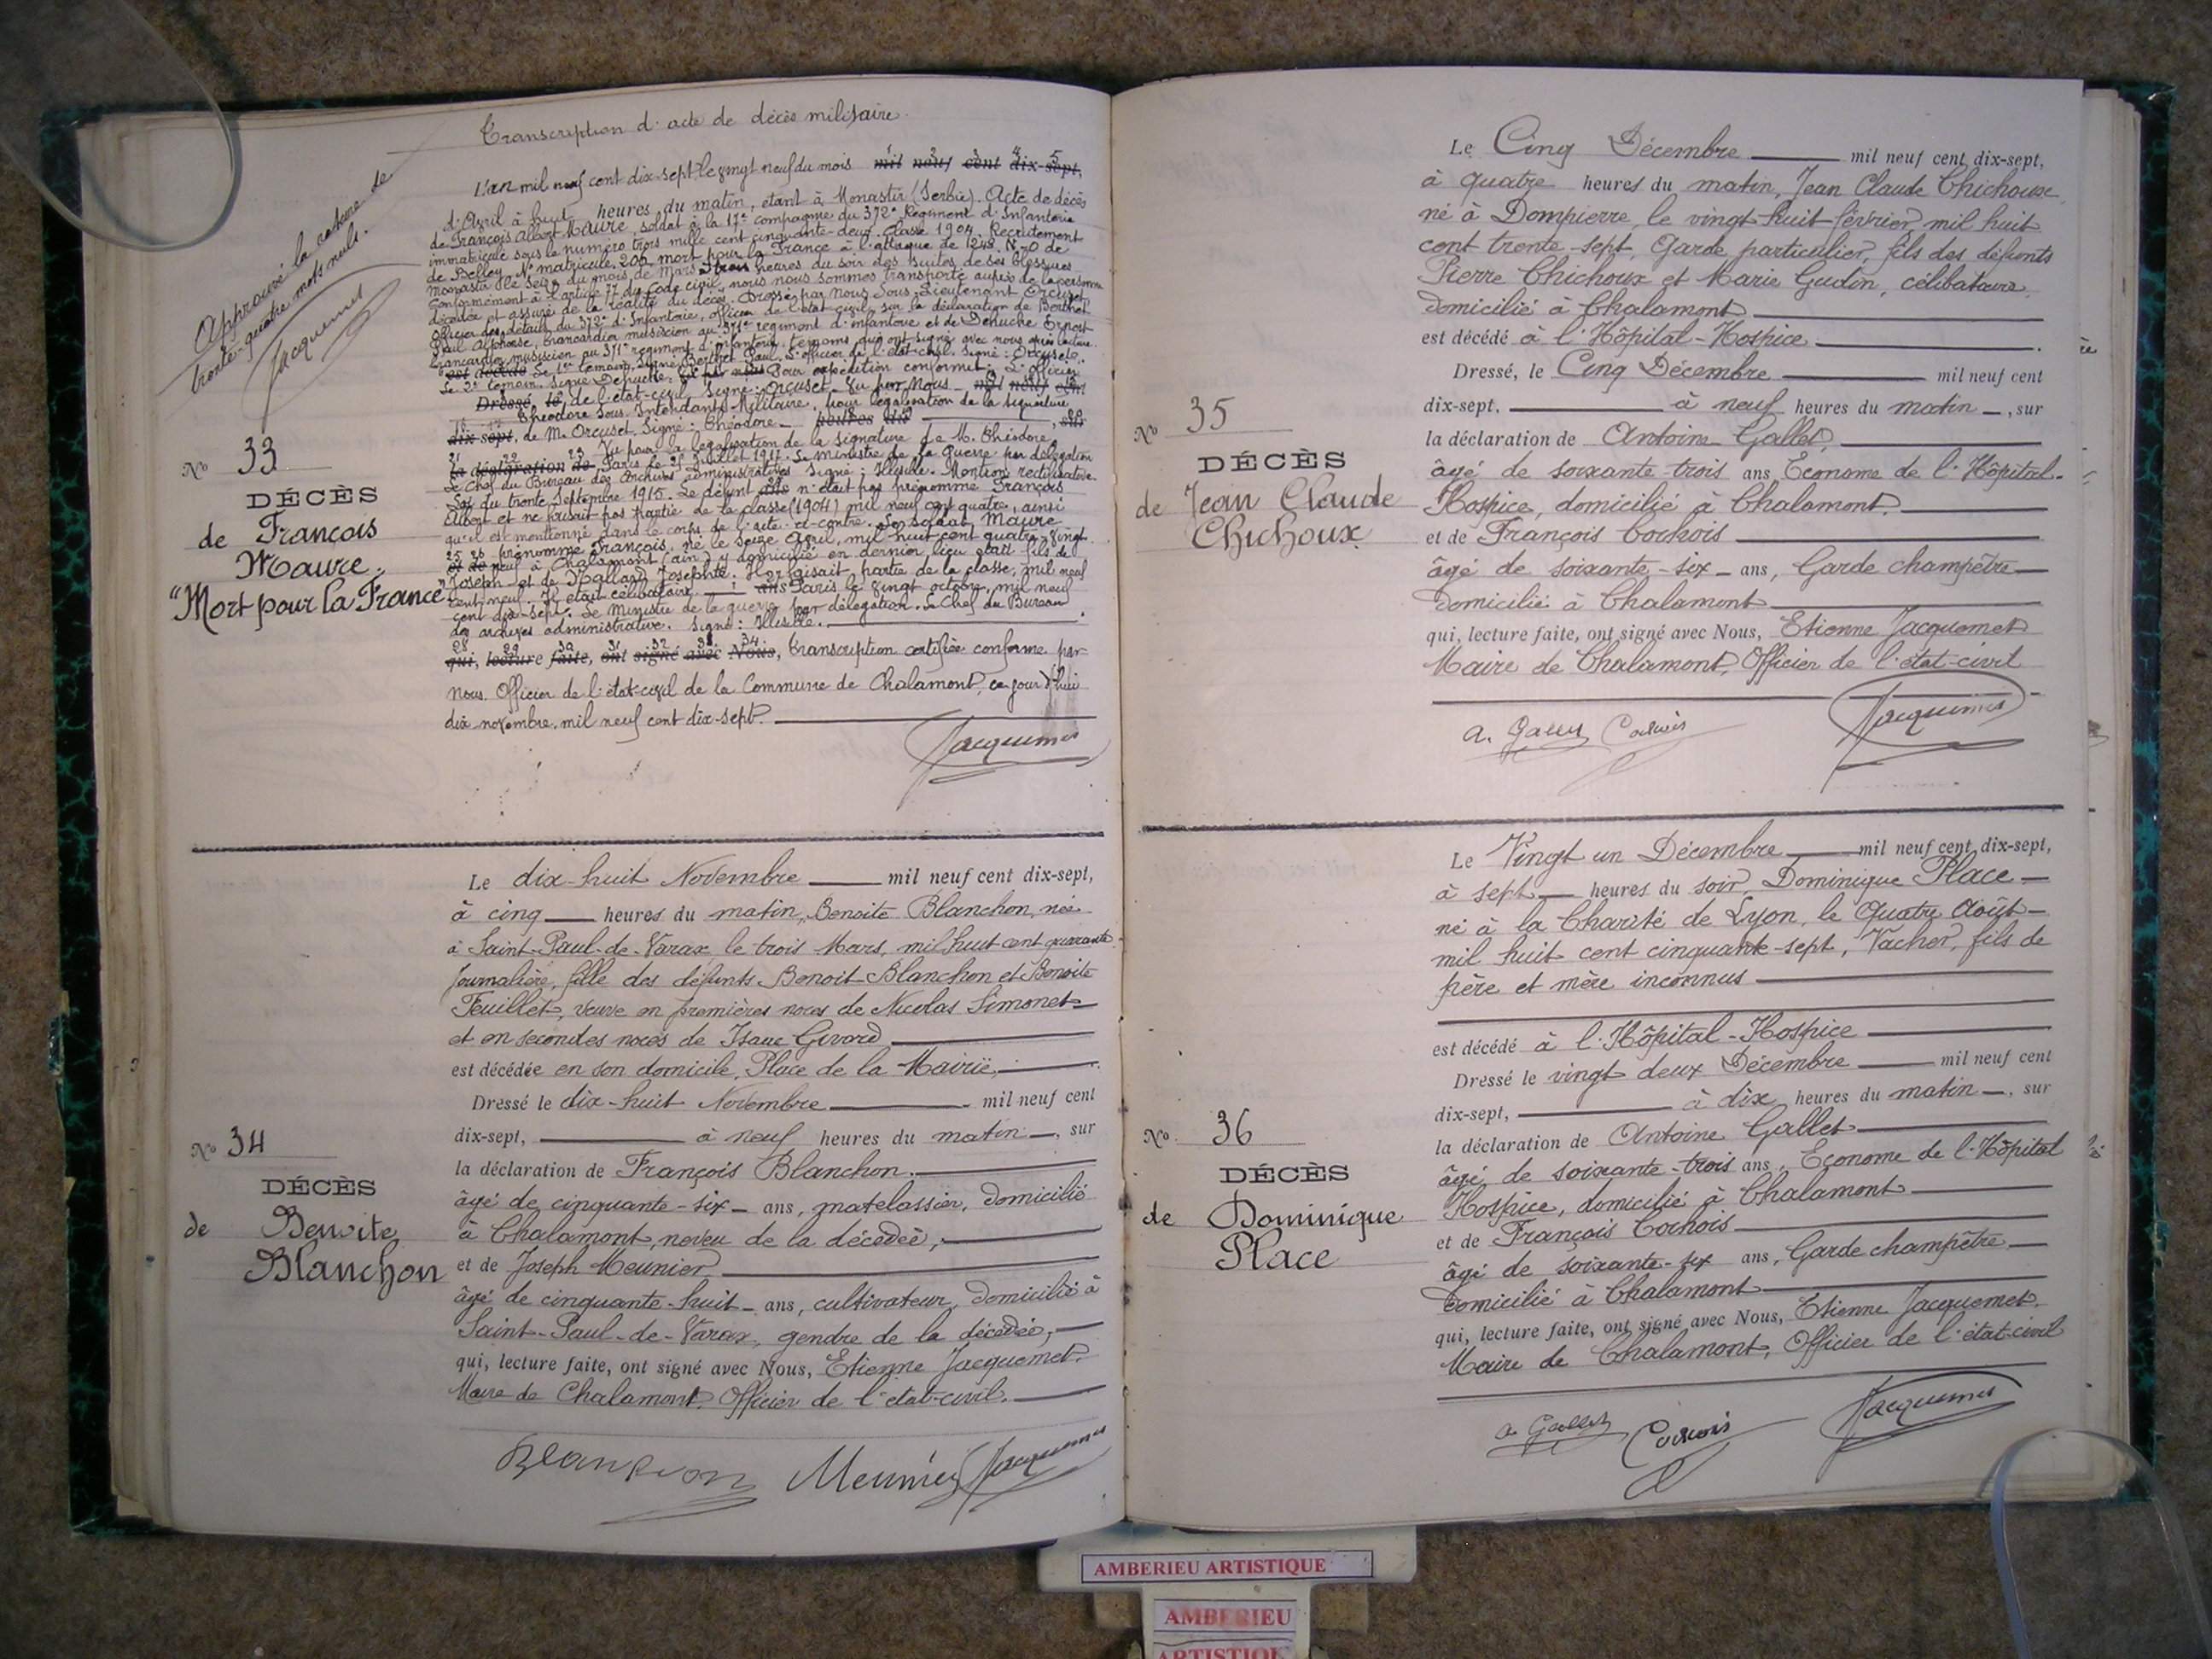 Transcription d'acte de décès militaire.
Approuvé la rature de
trente-quatre mots nuls.
Jacquemet
L'an mil neuf cent dix-sept le vingt neuf du mois mil neuf cent dix-sept,
d'Avril à huit heures du matin, étant à Monastir (Serbie). Acte de décès
de François Albert Maure, soldat à la 17e compagnie du 372e Regiment d'Infanterie
immatriculé sous le numéro trois mille cent cinquante-deux. Classe 1904. Recrutement
de Belley. No matricule. 206, mort pour la France à l'attaque de 1248. N.-O de
Monastir le seize du mois de Mars à trois heures du soir des suites de ses blessures
Conformément à l'article 77 du Code civil, nous nous sommes transporté auprès de la personne
décédée et assuré de la réalité du décès. Dressé par Nous Sous-Lieutenant Orcuset
Officier des détails du 372e d'Infanterie, officier de l'état-civil, sur la déclaration de Berthet
Paul Alphonse, brancardier musicien au 371e regiment d'infanterie et de Denuche Ernest
brancardier musicien au 371e regiment d'infanterie, témoins qui ont signé avec nous après lecture.
est décédé Le 1er témoin, signé Berthet Paul. L'officier de l'état-civil. Signé: Orcuset.
Le 2e témoin. Signé Denuche. Pour expédition conforme: L'officier
Dressé, le de l'état-civil. Signé: Orcuset. Vu par Nous mil neuf cent
Théodore Sous-Intendant Militaire, pour légalisation de la signature
dix-sept, de M. Orcuset. Signé: Théodore. heures du , sur
Vu pour la légalisation de la signature de M. Théodore
la déclaration de Paris le 25 Juillet 1917. Le ministre de la Guerre par délégation
Le Chef du Bureau des Archives administratives Signé: Illisible. Mention rectificative.
Loi du trente Septembre 1915. Le défunt n'était pas prénommé François
Albert et ne faisait pas partie de la classe (1904) mil neuf cent quatre, ainsi
qu'il est mentionné dans le corps de l'acte ci-contre. Le soldat Maure
prénommé François, né le seize avril, mil huit cent quatre-vingt
et de neuf à Chalamont (Ain) y domicilié en dernier lieu était fils de
Joseph et de Malland Josephte. Il faisait partie de la classe, mil neuf
cent neuf. Il était célibataire. ans Paris le vingt octobre, mil neuf
cent dix-sept. Le Ministre de la guerre par délégation. Le Chef du Bureau
des archives administrative. Signé: Illisible.
qui, lecture faite, ont signé avec Nous, Transcription certifiée conforme par
nous Officier de l'état-civil de la Commune de Chalamont, ce jour d'hui
dix novembre, mil neuf cent dix-sept.
Jacquemet
No 33
DÉCÈS
de François
Maure.
"Mort pour la France"
Le dix-huit Novembre mil neuf cent dix-sept,
à cinq heures du matin, Benoite Blanchon, née
à Saint-Paul-de-Varax le trois Mars, mil huit cent quarante
Journalière, fille des défunts Benoit Blanchon et Benoite
Feuillet, veuve en premières noces de Nicolas Simonet
et en secondes noces de Isaac Givord
est décédée en son domicile, Place de la Mairie,
Dressé le dix-huit Novembre mil neuf cent
dix-sept, à neuf heures du matin, sur
la déclaration de François Blanchon.
âgé de cinquante-six ans, matelassier, domicilié
à Chalamont, neveu de la décédée,
et de Joseph Meunier
âgé de cinquante-huit ans, cultivateur, domicilié à
Saint-Paul-de-Varax, gendre de la décédée,
qui, lecture faite, ont signé avec Nous, Etienne Jacquemet.
Maire de Chalamont. Officier de l'état-civil.
Blanchon Meunier Jacquemet
No 34
DÉCÈS
de Benoite
Blanchon
Le Cinq Décembre mil neuf cent dix-sept,
à quatre heures du matin, Jean Claude Chichoux
né à Dompierre, le vingt-huit février mil huit
cent trente-sept, Garde particulier, fils des défunts
Pierre Chichoux et Marie Gudin, célibataire
domicilié à Chalamont
est décédé à l'Hôpital-Hospice
Dressé, le Cinq Décembre mil neuf cent
dix-sept, à neuf heures du matin, sur
la déclaration de Antoine Gallet,
âgé de soixante-trois ans, Econome de l'Hôpital-
Hospice, domicilié à Chalamont.
et de François Cochois
âgé de soixante-six ans, Garde champêtre
domicilié à Chalamont
qui, lecture faite, ont signé avec Nous, Etienne Jacquemet
Maire de Chalamont, Officier de l'état-civil
a. Gallet Cochois Jacquemet
No 35
DÉCÈS
de Jean Claude
Chichoux
Le Vingt un Décembre mil neuf cent dix-sept,
à sept heures du soir, Dominique Place
né à la Charité de Lyon, le Quatre Août
mil huit cent cinquante-sept, Vacher, fils de
père et mère inconnus
est décédé à l'Hôpital-Hospice
Dressé le vingt deux Décembre mil neuf cent
dix-sept, à dix heures du matin, sur
la déclaration de Antoine Gallet
âgé de soixante-trois ans, Econome de l'Hôpital
Hospice, domicilié à Chalamont
et de François Cochois
âgé de soixante-six ans, Garde champêtre
domicilié à Chalamont
qui, lecture faite, ont signé avec Nous, Etienne Jacquemet.
Maire de Chalamont, Officier de l'état-civil
a. Gallet Cochois Jacquemet
No 36
DÉCÈS
de Dominique
Place
AMBERIEU ARTISTIQUE
AMBERIEU
ARTISTIQ